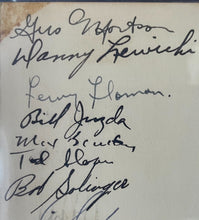 Gus Mortson
Danny Lewicki
Ferny Flaman.
Bill Juzda
Max Bentley
Ted Sloan
Bob Solinger